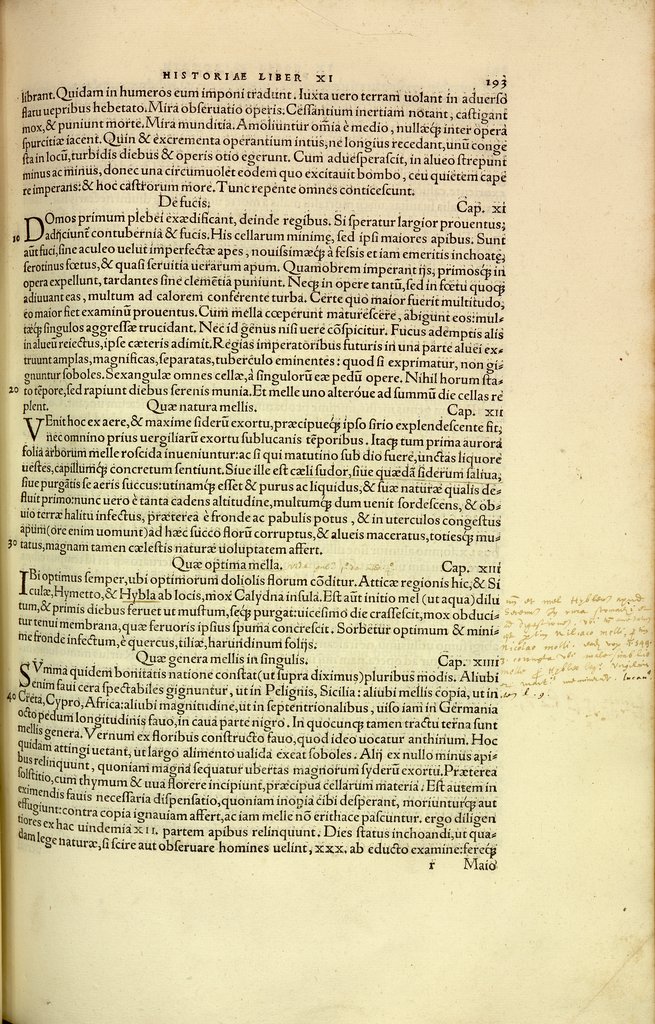 HISTORIAE LIBER XI
193
librant. Quidam in humeros eum imponi tradunt. Iuxta uero terram uolant in aduerso
flatu uepribus hebetato. Mira obseruatio operis. Cessantium inertiam notant, castigant
mox, & puniunt morte. Mira munditia. Amoliuntur om̄ia è medio, nullæq; inter opera
spurcitiæ iacent. Quin & excrementa operantium intus, ne longius recedant, unū conge
sta in locū, turbidis diebus & operis otio egerunt. Cum aduesperascit, in alueo strepunt
minus ac minus, donec una circumuolet eodem quo excitauit bombo, ceu quietem cape
re imperans: & hoc castrorum more. Tunc repente omnes conticescunt.
De fucis. Cap. xi
DOmos primum plebei exædificant, deinde regibus. Si speratur largior prouentus,
10 adijciunt contubernia & fucis. His cellarum minimę, sed ipsi maiores apibus. Sunt
aūt fuci, sine aculeo uelut imperfectæ apes, nouissimæq; à fessis et iam emeritis inchoatę,
serotinus fœtus, & quasi seruitia uerarum apum. Quamobrem imperant ijs, primosq; in
opera expellunt, tardantes sine clemētia puniunt. Neq; in opere tantū, sed in fœtu quoq;
adiuuant eas, multum ad calorem conferente turba. Certe quo maior fuerit multitudo,
eo maior fiet examinū prouentus. Cum mella cœperunt maturescere, abigunt eos: mul=
tæq; singulos aggressæ trucidant. Nec id genus nisi uere cōspicitur. Fucus ademptis alis
in alueū reiectus, ipse cæteris adimit. Regias imperatoribus futuris in una parte aluei ex=
truunt amplas, magnificas, separatas, tuberculo eminentes: quod si exprimatur, non gi=
gnuntur soboles. Sexangulæ omnes cellæ, à singulorū eæ pedū opere. Nihil horum sta=
20 to tēpore, sed rapiunt diebus serenis munia. Et melle uno alteróue ad summū die cellas re
plent. Quæ natura mellis. Cap. xii
VEnit hoc ex aere, & maxime siderū exortu, præcipueq; ipso sirio explendescente fit,
nec omnino prius uergiliarū exortu sublucanis tēporibus. Itaq; tum prima aurora
folia arborum melle roscida inueniuntur: ac si qui matutino sub dio fuere, unctas liquore
uestes, capillumq; concretum sentiunt. Siue ille est cæli sudor, siue quædā siderum saliua,
siue purgātis se aeris succus: utinamq; esset & purus ac liquidus, & suæ naturæ qualis de=
fluit primo: nunc uero è tanta cadens altitudine, multumq; dum uenit sordescens, & ob=
uio terræ halitu infectus, præterea è fronde ac pabulis potus, & in uterculos congestus
apum (ore enim uomunt) ad hæc succo florū corruptus, & alueis maceratus, totiesq; mu=
30 tatus, magnam tamen cælestis naturæ uoluptatem affert.
Quæ optima mella. Cap. xiii
IBi optimus semper, ubi optimorum doliolis florum cōditur. Atticæ regionis hic, & Si
culæ, Hymetto, & Hybla ab locis, mox Calydna insula. Est aūt initio mel (ut aqua) dilu
tum, & primis diebus feruet ut mustum, seq; purgat: uicesimo die crassescit, mox obduci=
tur tenui membrana, quæ feruoris ipsius spuma concrescit. Sorbetur optimum & mini=
me fronde infectum, è quercus, tiliæ, harundinum folijs.
Quæ genera mellis in singulis. Cap. xiiii
SVmma quidem bonitatis natione constat (ut supra diximus) pluribus modis. Aliubi
enim faui cera spectabiles gignuntur, ut in Pelignis, Sicilia: aliubi mellis copia, ut in
40 Creta, Cypro, Africa: aliubi magnitudine, ut in septentrionalibus, uiso iam in Germania
octo pedum longitudinis fauo, in caua parte nigro. In quocunq; tamen tractu terna sunt
mellis genera. Vernum ex floribus constructo fauo, quod ideo uocatur anthinum. Hoc
quidam attingi uetant, ut largo alimento ualida exeat soboles. Alij ex nullo minus api=
bus relinquunt, quoniam magna sequatur ubertas magnorum syderū exortu. Præterea
solstitio, cum thymum & uua florere incipiunt, præcipua cellarum materia. Est autem in
eximendis fauis necessaria dispensatio, quoniam inopia cibi desperant, moriunturq; aut
effugiunt: contra copia ignauiam affert, ac iam melle nō erithace pascuntur. ergo diligen
tiores ex hac uindemia XII. partem apibus relinquunt. Dies status inchoandi, ut qua=
dam lege naturæ, si scire aut obseruare homines uelint, xxx. ab educto examine: fereq;
r Maio